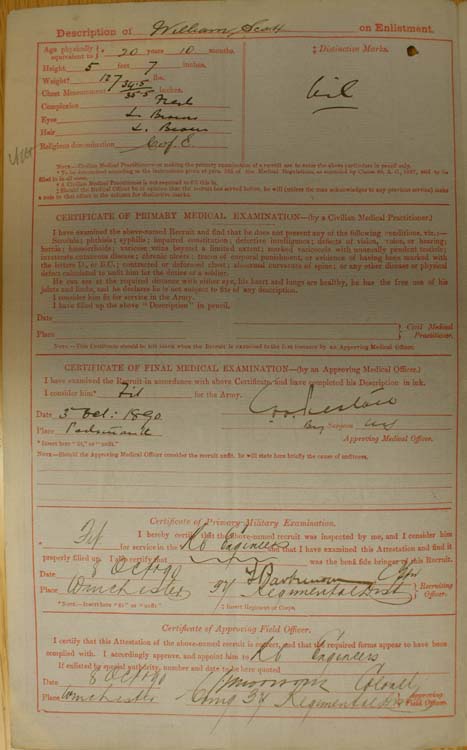 Description of William Scott on Enlistment.
Age physically equivalent to 20 years 10 months.
Height 5 feet 7 inches.
Weight 127 lbs.
Chest Measurement 34.5 inches.
35.5
Complexion Fresh
Eyes Lt Brown
Hair Lt. Brown
Religious denomination C of E.
‡ Distinctive Marks.
Nil
CERTIFICATE OF PRIMARY MEDICAL EXAMINATION—(by a Civilian Medical Practitioner.)
I have examined the above-named Recruit and find that he does not present any of the following conditions, viz.:—
Scrofula; phthisis; syphilis; impaired constitution; defective intelligence; defects of vision, voice, or hearing;
hernia; hæmorrhoids; varicose veins beyond a limited extent; marked varicocele with unusually pendent testicle;
inveterate cutaneous disease; chronic ulcers; traces of corporal punishment, or evidence of having been marked with
the letters D., or B.C.; contracted or deformed chest; abnormal curvature of spine; or any other disease or physical
defect calculated to unfit him for the duties of a soldier.
He can see at the required distance with either eye, his heart and lungs are healthy, he has the free use of his
joints and limbs, and he declares he is not subject to fits of any description.
I consider him fit for service in the Army.
I have filled up the above "Description" in pencil.
Date
Place
Civil Medical Practitioner.
NOTE.—This Certificate should be left blank when the Recruit is examined in the first instance by an Approving Medical Officer.
CERTIFICATE OF FINAL MEDICAL EXAMINATION—(by an Approving Medical Officer.)
I have examined the Recruit in accordance with above Certificate, and have completed his Description in ink.
I consider him* Fit for the Army.
Date 3 Oct: 1890
Place Portsmouth
Surgeon
Approving Medical Officer.
* Insert here "fit," or "unfit."
NOTE.—Should the Approving Medical Officer consider the recruit unfit, he will state here briefly the cause of unfitness.
Certificate of Primary Military Examination.
I hereby certify that the above-named recruit was inspected by me, and I consider him
* Fit for service in the Rl Engineers and that I have examined this Attestation and find it
properly filled up. I also certify that was the bonâ fide bringer of this Recruit.
Date 8 Oct 90
Place Winchester 37 Regimental Dist
Recruiting Officer.
*NOTE.—Insert here "fit" or "unfit."
‡ Insert Regiment or Corps.
Certificate of Approving Field Officer.
I certify that this Attestation of the above-named recruit is correct, and that the required forms appear to have been
complied with. I accordingly approve, and appoint him to Rl Engineers
If enlisted by special authority, number and date to be here quoted
Date 8 Oct 90 Colonel
Place Winchester Comg 37 Regimental Dist
Approving Field Officer.